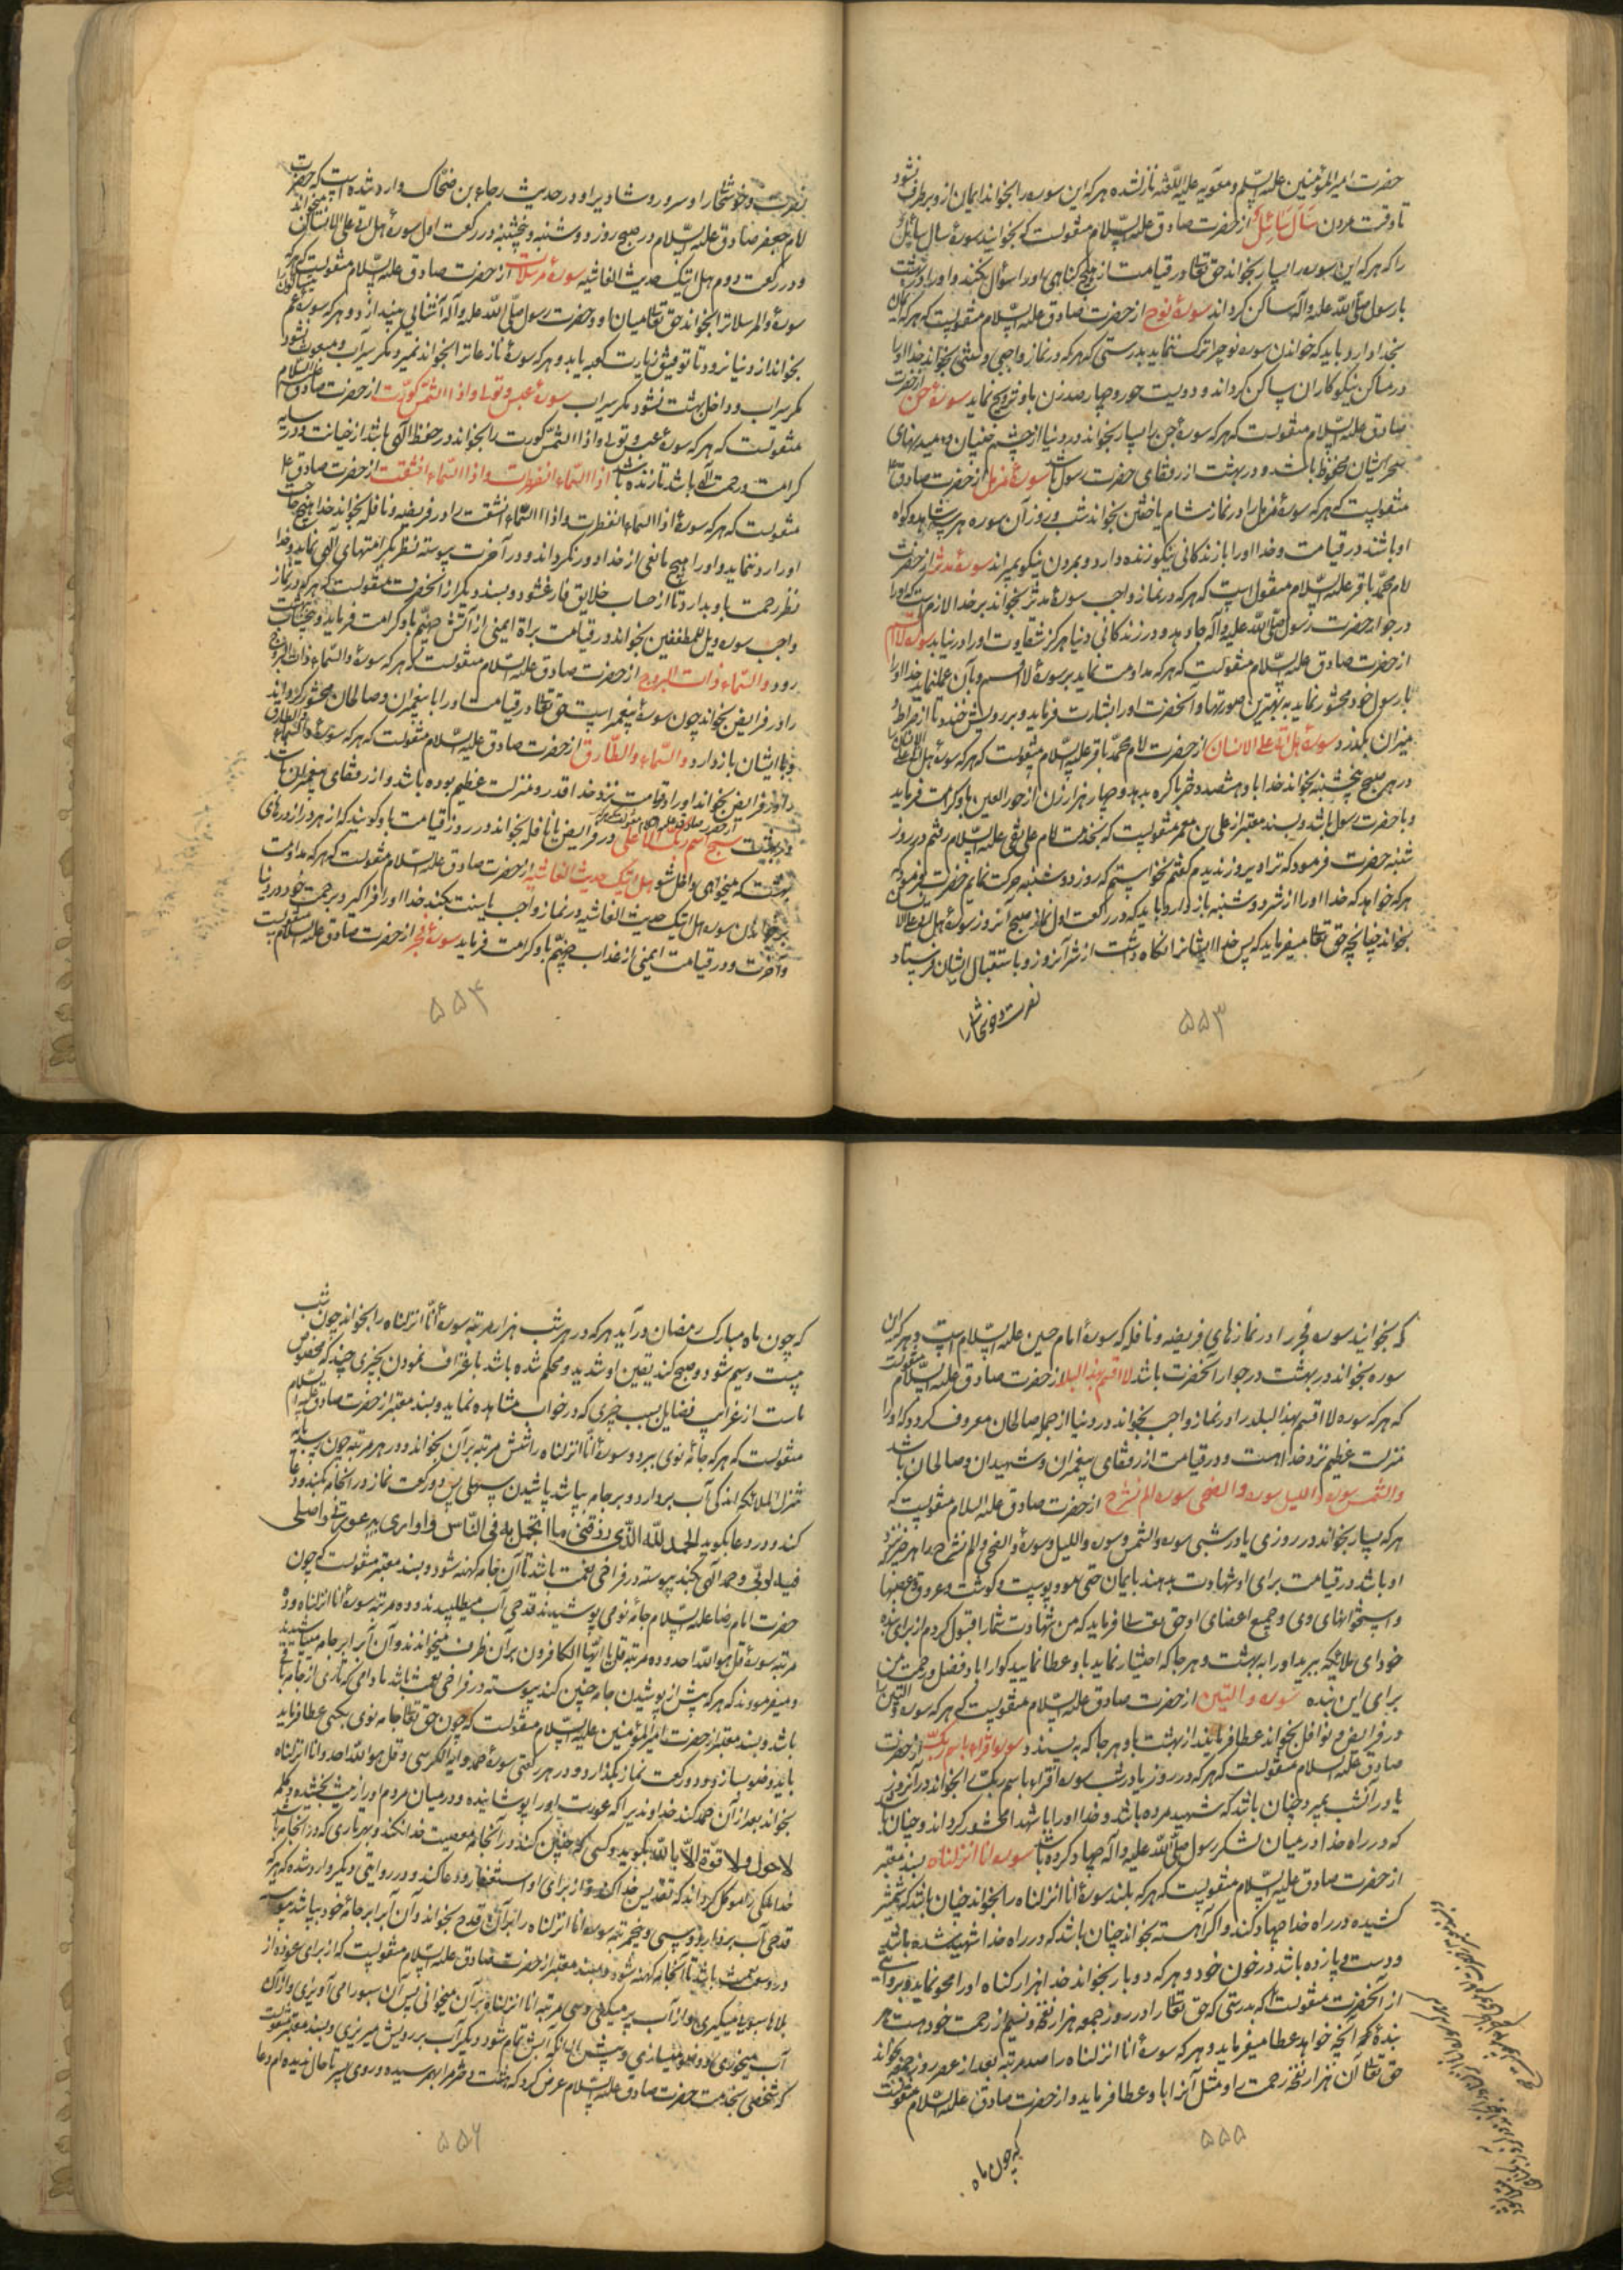 حضرت امیر المؤمنین علیه السّلم و معویه علیه اللّعنه نازل شده هر که این سوره را بخواند ایمان از و برطرف نشود
تا وقت مردن سَاَلَ سَائِلٌ از حضرت صادق علیه السّلام منقولست که بخوانید سورهٔ سال سائل
را که هر که این سوره را بسیار بخواند حق تعالی در قیامت از هیچ کناهی او را سؤال نکند و او را در بهشت
با رسول صلّی اللّه علیه و آله ساکن کرداند سورهٔ نوح از حضرت صادق علیه السّلام منقولست که هر که ایمان
بخدا دارد باید که خواندن سوره نوح را ترک ننماید بدرستی که هر که در نماز واجبی و سنتی بخواند خدا او را
در مساکن نیکوکاران ساکن کرداند و دویست حور و چهار صد زن باو تزویج نماید سورهٔ جن از حضرت
صادق علیه السّلام منقولست که هر که سورهٔ جن را بسیار بخواند در دنیا از چشم جنیان و دمیدنهای
سحر ایشان محفوظ باشد و در بهشت از رفقای حضرت رسول باشد سورهٔ مزمل از حضرت صادق ع
منقولست که هر که سورهٔ مزمل را در نماز شام یا خفتن بخواند شب و روز آن سوره هر سه شاهد و کواه
او باشند در قیامت و خدا او را با زندکانی نیکو زنده دارد و بمردن نیکو بمیراند سورهٔ مدثر از حضرت
امام محمّد باقر علیه السّلام منقول است که هر که در نماز واجب سورهٔ مدثر بخواند بر خدا لازمست که او را
در جوار حضرت رسول صلّی اللّه علیه و آله جا دهد و در زندکانی دنیا هرکز شقاوت او را در نیابد سورهٔ لا اقسم
از حضرت صادق علیه السّلام منقولست که هر که مداومت نماید بر سورهٔ لا اقسم و بآن عمل نماید خدا او را
با رسول خود محشور نماید به بهترین صورتها و آنحضرت او را بشارت فرماید و بر رویش خندد تا از صراط و
میزان بکذرد سورهٔ هل اتی علی الانسان از حضرت امام محمّد باقر علیه السّلام منقولست که هر که سورهٔ هل اتی علی الانسان
در هر صبح پنجشنبه بخواند خدا باو هشصد دختر باکره بدهد و چهار هزار زن از حور العین باو کرامت فرماید
و با حضرت رسول باشد و بسند معتبر از علی بن عمر منقولست که بخدمت امام علی نقی علیه السّلام رفتم در روز
شنبه حضرت فرمود که ترا دیروز ندیدم کفتم نخواستم که روز دوشنبه حرکت نمایم حضرت فرمود که
هر که خواهد که خدا او را از شر دوشنبه باز دارد باید که در رکعت اول نماز صبح آنروز سورهٔ هل اتی علی الا
بخواند چنانچه حق تعالی میفرماید که پس خدا ایشانرا نکاه داشت از شر آنروز و باستقبال ایشان فرستاد
نصرت و خوشحالی را
۵۵۳
نصرت و خوشحالی را و سرور و شادی را و در حدیث رجاء بن ضحّاک وارد شده است که حضرت
امام جعفر صادق علیه السّلام در صبح روز دوشنبه و پنجشنبه در رکعت اول سورهٔ هل اتی علی الانسان میخواند
و در رکعت دوم هل اتیک حدیث الغاشیه سورهٔ مرسلات از حضرت صادق علیه السّلام منقولست که هر که
سورهٔ والمرسلات را بخواند حق تعالی میان او و حضرت رسول صلّی اللّه علیه و آله آشنائی بیندازد و هر که سورهٔ عم
بخواند از دنیا نرود تا توفیق زیارت کعبه یابد و هر که سورهٔ نازعات را بخواند نمیرد مکر سیراب و مبعوث نشود
مکر سیراب و داخل بهشت نشود مکر سیراب سورهٔ عبس و تولی و اذا الشّمس کوّرت از حضرت صادق علیه السلام
منقولست که هر که سورهٔ عبس و تولی و اذا الشّمس کورت را بخواند در حفظ الهی باشد از خیانت و در سایه
کرامت و رحمت الهی باشد تا زنده باشد اذا السّماء انفطرت و اذا السّماء انشقت از حضرت صادق ع
منقولست که هر که سورهٔ اذا السّماء انفطرت و اذا السّماء انشقت را در فریضه و نافله بخواند خدا هیچ حاجت
او را رد ننماید و او را هیچ مانعی از خدا دور نکرداند و در آخرت پیوسته نظر بکرامتهای آلهی نماید و خدا
نظر رحمت باو بدارد تا از حساب خلایق فارغ شود و بسند دیکر از آنحضرت منقولست که هر که در نماز
واجب سوره ویل للمطففین بخواند در قیامت براة ایمنی از آتش جهنّم باو کرامت فرماید و بیحساب ببهشت
رود والسّماء ذات البروج از حضرت صادق علیه السّلام منقولست که هر که سورهٔ والسّماء ذات البروج
را در فرایض بخواند چون سورهٔ پیغمبرانست حق تعالی در قیامت او را با پیغمبران و صالحان محشور کرداند
و با ایشان باز دارد والسّماء والطّارق از حضرت صادق علیه السّلام منقولست که هر که سورهٔ والسّماء والطارق
را در فرایض بخواند او را در قیامت نزد خدا قدر و منزلت عظیم بوده باشد و از رفقای پیغمبران باشد
در بهشت سبح اسم ربک الاعلی از حضرت صادق علیه السلام منقولست که هر که در فرایض یا نافله بخواند در روز قیامت باو کویند که از هر در از درهای
بهشت که میخواهی داخل شو هل اتیک حدیث الغاشیه از حضرت صادق علیه السّلام منقولست که هر که مداومت
بر خواندن سوره هل اتیک حدیث الغاشیه در نماز واجب یا سنت بکند خدا او را فراکیرد برحمت خود در دنیا
و آخرت و در قیامت ایمنی از عذاب جهنّم باو کرامت فرماید سورهٔ فجر از حضرت صادق علیه السّلام منقولست
۵۵۴
که بخوانید سوره فجر را در نمازهای فریضه و نافله که سورهٔ امام حسین علیه السّلام است و هر که این
سوره بخواند در بهشت در جوار آنحضرت باشد لا اقسم بهذا البلد از حضرت صادق علیه السّلام منقولست
که هر که سوره لا اقسم بهذا البلد را در نماز واجب بخواند در دنیا از جمله صالحان معروف کردد که او را
منزلت عظیم نزد خدا هست و در قیامت از رفقای پیغمبران و شهیدان و صالحان باشد
والشّمس سوره واللیل سوره والضحی سوره الم نشرح از حضرت صادق علیه السلام منقولست که
هر که بسیار بخواند در روزی یا در شبی سوره والشّمس و سوره واللیل و سورهٔ والضحی و الم نشرح را هر چیز نزد
او باشد در قیامت برای او شهادت بدهند بایمان حتی موو پوست و کوشت و عروق و عصبها
و استخوانهای وی و جمیع اعضای او حق تعالی فرماید که من شهادت شما را قبول کردم از برای بنده
خود ای ملائکه ببرید او را به بهشت و هر جا که اختیار نماید باو عطا نمایید کوارا باد فضل و رحمت من
برای این بنده سوره والتین از حضرت صادق علیه السّلام منقولست که هر که سوره والتین را
در فرایض و نوافل بخواند عطا فرمایند از بهشت باو هر جا که به پسندد سورهٔ اقراء باسم ربک از حضرت
صادق علیه السلام منقولست که هر که در روز یا در شب سوره اقراء باسم ربک را بخواند در آنروز
یا در آنشب بمیرد چنان باشد که شهید مرده باشد و خدا او را با شهدا محشور کرداند و چنان باشد
که در راه خدا در میان لشکر رسول صلّی اللّه علیه و آله جهاد کرده باشد سوره انا انزلناه بسند معتبر
از حضرت صادق علیه السّلام منقولست که هر که بلند سورهٔ انا انزلناه را بخواند چنان باشد که شمشیر
کشیده در راه خدا جهاد کند و اکر آهسته بخواند چنان باشد که در راه خدا شهید شده باشد
و دست و پا زده باشد در خون خود و هر که ده بار بخواند خدا هزار کناه او را محو نماید و بروایتی
از آنحضرت منقولست که بدرستی که حق تعالی را در روز جمعه هزار نفخه و نسیم از رحمت خود هست هر
بندهٔ که آنچه خواهد عطا میفرماید و هر که سورهٔ انا انزلناه را صد مرتبه بعد از عصر روز جمعه بخواند
حق تعالی آن هزار نفخه رحمت را و مثل آنرا باو عطا فرماید و از حضرت صادق علیه السّلام منقولست
که چون ماه
۵۵۵
که چون ماه مبارک رمضان در آید هر که در هر شب هزار مرتبه سورهٔ انّا انزلناه را بخواند چون شب
بیست و سیم شود و صبح کند یقین او شدید و محکم شده باشد باعتراف نمودن بچیزی چند که مخصوص
ماست از غرایب فضایل بسبب چیزی که در خواب مشاهده نماید و بسند معتبر از حضرت صادق علیه السلام
منقولست که هر که جامهٔ نوی ببرد و سورهٔ انا انزلناه را شش مرتبه بر آن بخواند و در هر مرتبه چون برسد به
تنزل الملائکه اندکی آب بردارد و بر جامه بپاشد پاشیدن سهلی پس دو رکعت نماز در آنجامه بکند و دعا
کند و در دعا بکوید الحمد للّه الّذی رزقنی ما اتجمل به فی النّاس و اواری به عورتی و اصلی
فیه لربّی و حمد آلهی بکند پیوسته در فراخی نعمت باشد تا آن جامه کهنه شود و بسند معتبر منقولست که چون
حضرت امام رضا علیه السّلام جامهٔ نومی پوشیدند قدحی آب میطلبیدند و ده مرتبه سورهٔ انا انزلناه و ده
مرتبه سورهٔ قل هو اللّه احد و ده مرتبه قل یا ایّها الکافرون بر آن ظرف میخواندند و آن آبرا بر جامه میپاشیدند
و میفرمودند که هر که پیش از پوشیدن جامه چنین کند پیوسته در فراخی نعمت باشد مادامی که تاری از جامه باقی
باشد و بسند معتبر از حضرت امیر المؤمنین علیه السّلام منقولست که چون حق تعالی جامه نوی بکسی عطا فرماید
باید وضو سازد و دو رکعت نماز بکذارد و در هر رکعتی سورهٔ حمد و آیة الکرسی و قل هو اللّه احد و انا انزلناه
بخواند بعد از آن حمد کند خداوندیرا که عورت او را پوشانیده و در میان مردم او را زینت بخشیده و کلمهٔ
لا حول ولا قوّة الّا باللّه بکوید و کسی که چنین کند در آنجامه معصیت خدا نکند و بهر تاری که در آنجامه باشد
خدا ملکی را موکل کرداند که تقدیس خدا کند و از برای او استغفار و دعا کند و در روایتی دیکر وارد شده که هر که
قدحی آب بردارد و سی و پنجمرتبه سوره انا انزلناه را بر آن قدح بخواند و آن آبرا بر جامهٔ خود بپاشد پیوسته
در وسعت باشد تا آنجامه کهنه شود و بسند معتبر از حضرت صادق علیه السّلام منقولست که از برای عوذه از
بلاها سبوی میکیری و از آب پر میکنی و سی مرتبه انا انزلناه بر آن میخوانی پس آن سبو را می آویزی و از آن
آب میخوری و وضو میسازی و پیش از آنکه آبش تمام شود دیکر آب بر رویش میریزی و بسند معتبر منقولست
که شخصی بخدمت حضرت صادق علیه السّلام عرض کرد که هشت دختر بهم رسیده و روی پسر تا حال ندیده ام دعا
۵۵۶